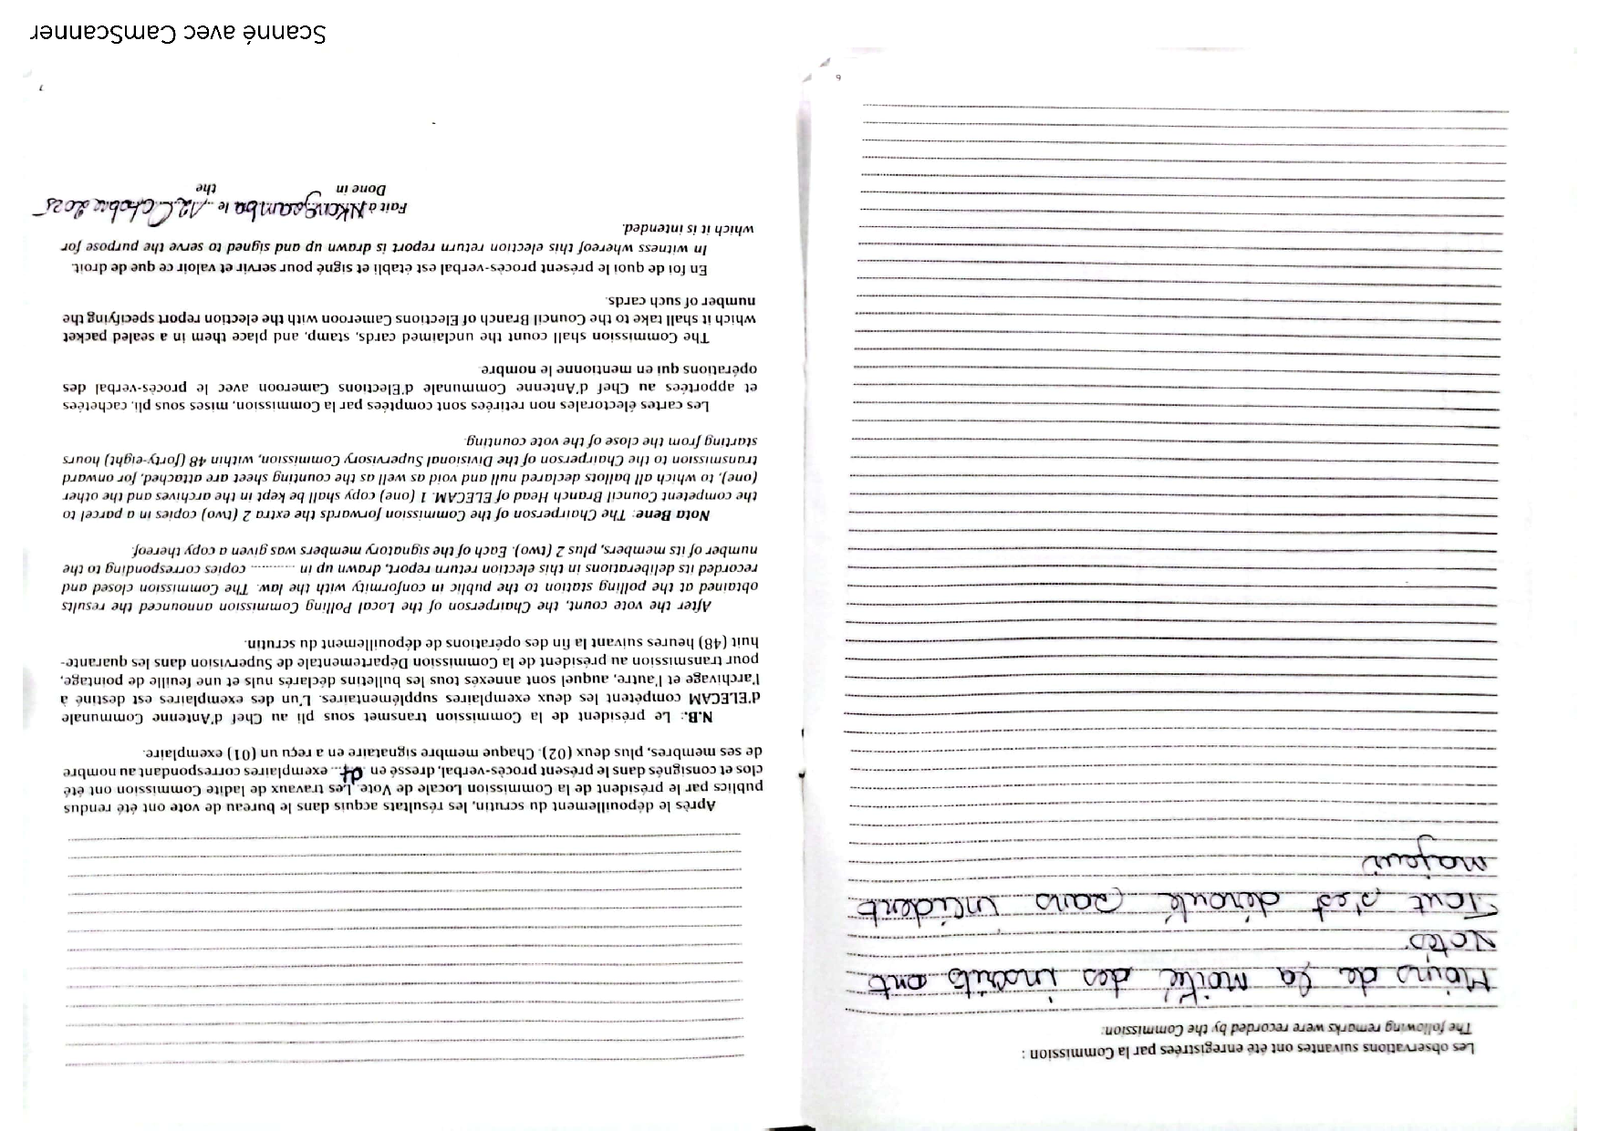 Les observations suivantes ont été enregistrées par la Commission :
The following remarks were recorded by the Commission:
Moins de la moitié des inscrits ont
votés
Tout s'est déroulé sans incident
majeur
6
Après le dépouillement du scrutin, les résultats acquis dans le bureau de vote ont été rendus
publics par le président de la Commission Locale de Vote. Les travaux de ladite Commission ont été
clos et consignés dans le présent procès-verbal, dressé en ... exemplaires correspondant au nombre
de ses membres, plus deux (02). Chaque membre signataire en a reçu un (01) exemplaire.
N.B.: Le président de la Commission transmet sous pli au Chef d'Antenne Communale
d'ELECAM compétent les deux exemplaires supplémentaires. L'un des exemplaires est destiné à
l'archivage et l'autre, auquel sont annexés tous les bulletins déclarés nuls et une feuille de pointage,
pour transmission au président de la Commission Départementale de Supervision dans les quarante-
huit (48) heures suivant la fin des opérations de dépouillement du scrutin.
After the vote count, the Chairperson of the Local Polling Commission announced the results
obtained at the polling station to the public in conformity with the law. The Commission closed and
recorded its deliberations in this election return report, drawn up in ........... copies corresponding to the
number of its members, plus 2 (two). Each of the signatory members was given a copy thereof.
Nota Bene: The Chairperson of the Commission forwards the extra 2 (two) copies in a parcel to
the competent Council Branch Head of ELECAM. 1 (one) copy shall be kept in the archives and the other
(one), to which all ballots declared null and void as well as the counting sheet are attached, for onward
transmission to the Chairperson of the Divisional Supervisory Commission, within 48 (forty-eight) hours
starting from the close of the vote counting.
Les cartes électorales non retirées sont comptées par la Commission, mises sous pli, cachetées
et apportées au Chef d'Antenne Communale d'Elections Cameroon avec le procès-verbal des
opérations qui en mentionne le nombre.
The Commission shall count the unclaimed cards, stamp, and place them in a sealed packet
which it shall take to the Council Branch of Elections Cameroon with the election report specifying the
number of such cards.
En foi de quoi le présent procès-verbal est établi et signé pour servir et valoir ce que de droit.
In witness whereof this election return report is drawn up and signed to serve the purpose for
which it is intended.
Fait à Nkongsamba le 12 Octobre 2025
Done in the
7
Scanné avec CamScanner